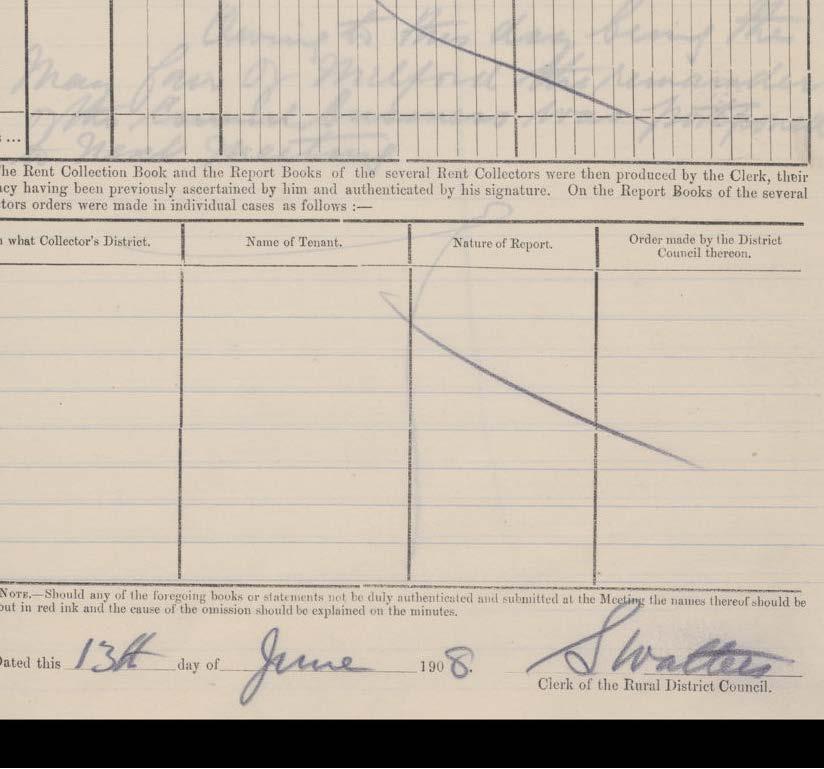 Owing to this day being the
May fair of Milford the remainder
of the business was postponed
...
he Rent Collection Book and the Report Books of the several Rent Collectors were then produced by the Clerk, their
cy having been previously ascertained by him and authenticated by his signature. On the Report Books of the several
tors orders were made in individual cases as follows :—
what Collector's District. Name of Tenant. Nature of Report. Order made by the District
Council thereon.
NOTE.—Should any of the foregoing books or statements not be duly authenticated and submitted at the Meeting the names thereof should be
out in red ink and the cause of the omission should be explained on the minutes.
Dated this 13th day of June 1908.
S Walters
Clerk of the Rural District Council.